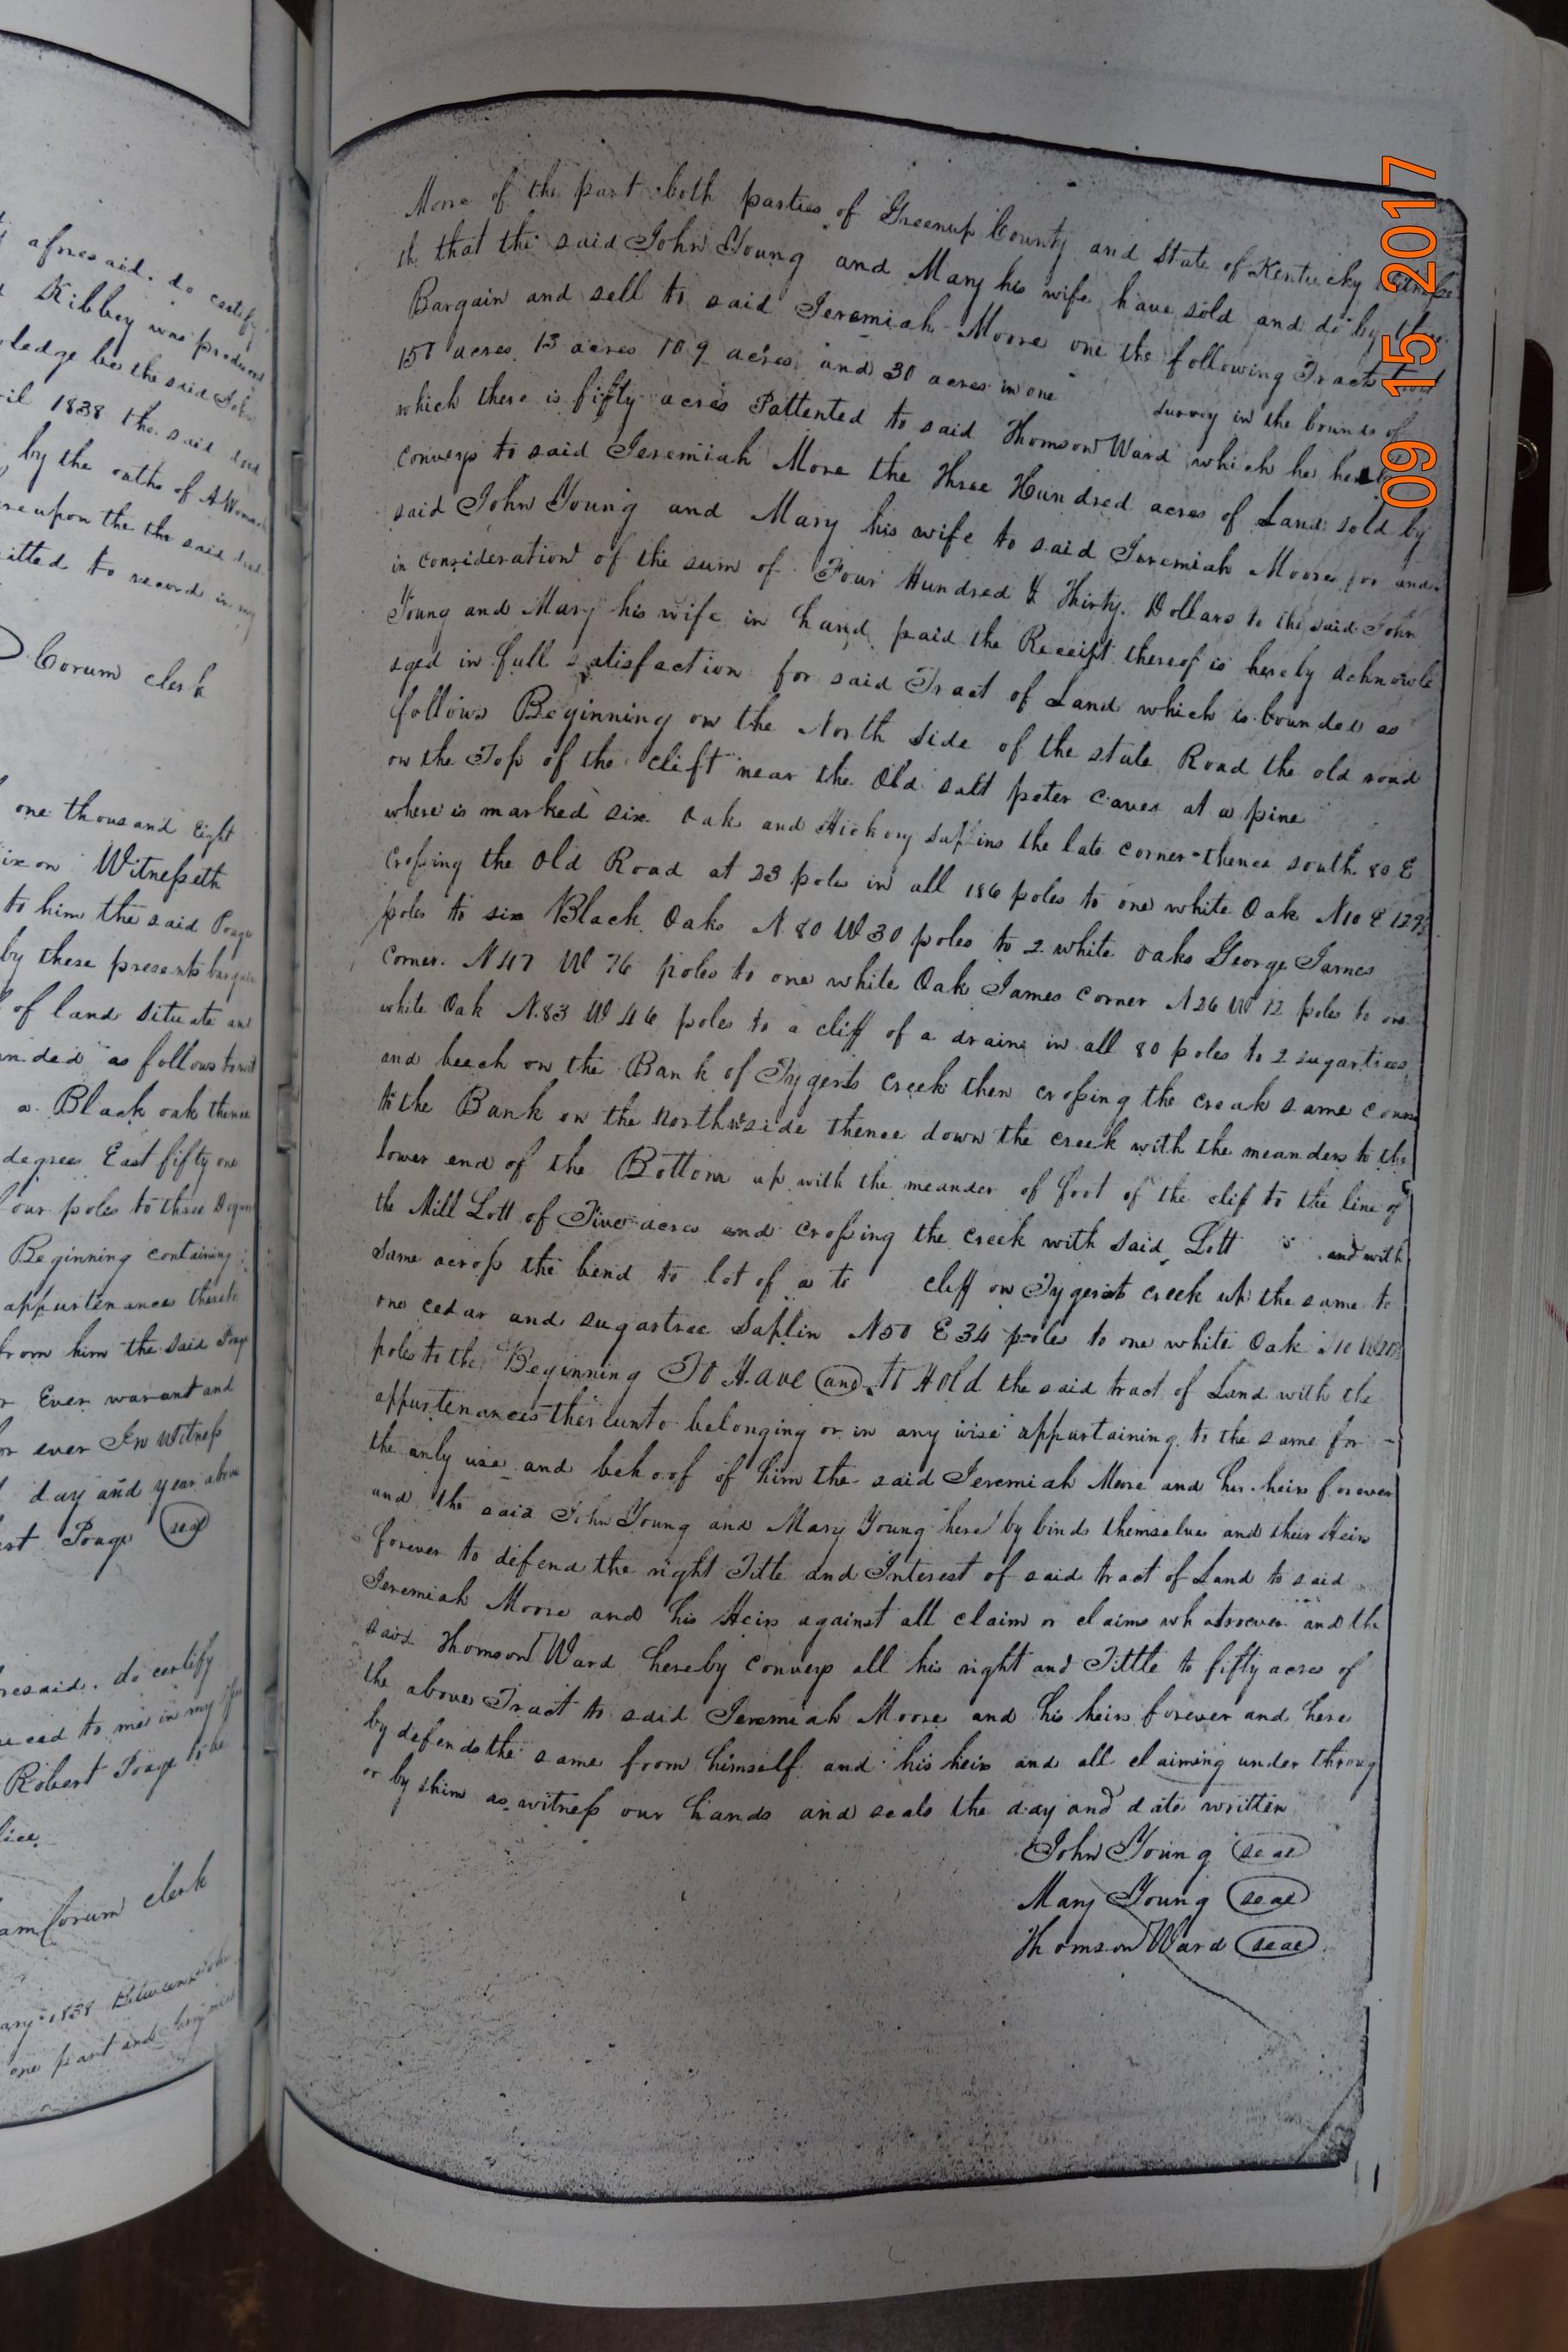 aforesaid. do certify
Kibbey was produced
ledge be the said John
il 1838 the said deed
by the oaths of A Womack
reupon the the said deed
itted to record in my
Corum clerk
one thousand Eight
ixon Witnesseth
to him the said Poage
by these presents bargain
of land situate and
nded as follows towit
a Black oak thence
degrees East fifty one
our poles to three Dogwood
Beginning containing
appurtenances thereto
from him the said Poage
r Ever warant and
or ever In witness
day and year above
rt Poage seal
resaid. do certify
uced to me in my
Robert Poage to be
fice
am Corum clerk
ary 1838 Between
one part and
More of the part both parties of Greenup County and State of Kentucky Witnesse
th that the said John Young and Mary his wife have sold and do by these
Bargain and sell to said Jeremiah Moore one the following Tracts
150 acres 13 acres 109 acres and 30 acres in one survey in the bounds of
which there is fifty acres Pattented to said Thomson Ward which he hereby
conveys to said Jeremiah More the Three Hundred acres of Land sold by
said John Young and Mary his wife to said Jeremiah Moore for and
in consideration of the sum of Four Hundred & Thirty Dollars to the said John
Young and Mary his wife in hand paid the Receipt thereof is hereby acknowle
dged in full satisfaction for said Tract of Land which is bounded as
follows Beginning on the North side of the state Road the old road
on the Top of the clift near the Old salt peter caves at a pine
where is marked six Oak and Hickory saplins the late corner thence south 80 E
crossing the Old Road at 23 poles in all 186 poles to one white Oak N10 E
poles to six Black Oaks N 80 W 30 poles to 2 white oaks George James
corner. N47 W 76 poles to one white Oak James corner N26 W 12 poles to one
white Oak N.83 W 46 poles to a cliff of a drain in all 80 poles to 2 sugartrees
and beech on the Bank of Tygerts creek then crossing the creak same course
to the Bank on the north side thence down the creek with the meanders to the
lower end of the Bottom up with the meander of foot of the clif to the line of
the Mill Lott of Five acres and crossing the creek with said Lott and with
same across the bend to lot of a to cliff on Tygerst creek the same to
one cedar and sugartree Saplin N50 E 34 poles to one white Oak
poles to the Beginning To Have and to Hold the said tract of Land with the
appurtenances thereunto belonging or in any wise appurtaining to the same for
the only use and behoof of him the said Jeremiah More and his heirs forever
and the said John Young and Mary Young here by binds themselves and their Heirs
forever to defend the right Title and Interest of said tract of Land to said
Jeremiah Moore and his Heirs against all claim or claims whatsoever and the
said Thomson Ward hereby conveys all his right and Tittle to fifty acres of
the above Tract to said Jeremiah Moore and his heirs forever and here
by defends the same from himself and his heirs and all claiming under throug
or by him as witness our hands and seals the day and date written
John Young seal
Mary Young seal
Thomson Ward seal
09 15 2017